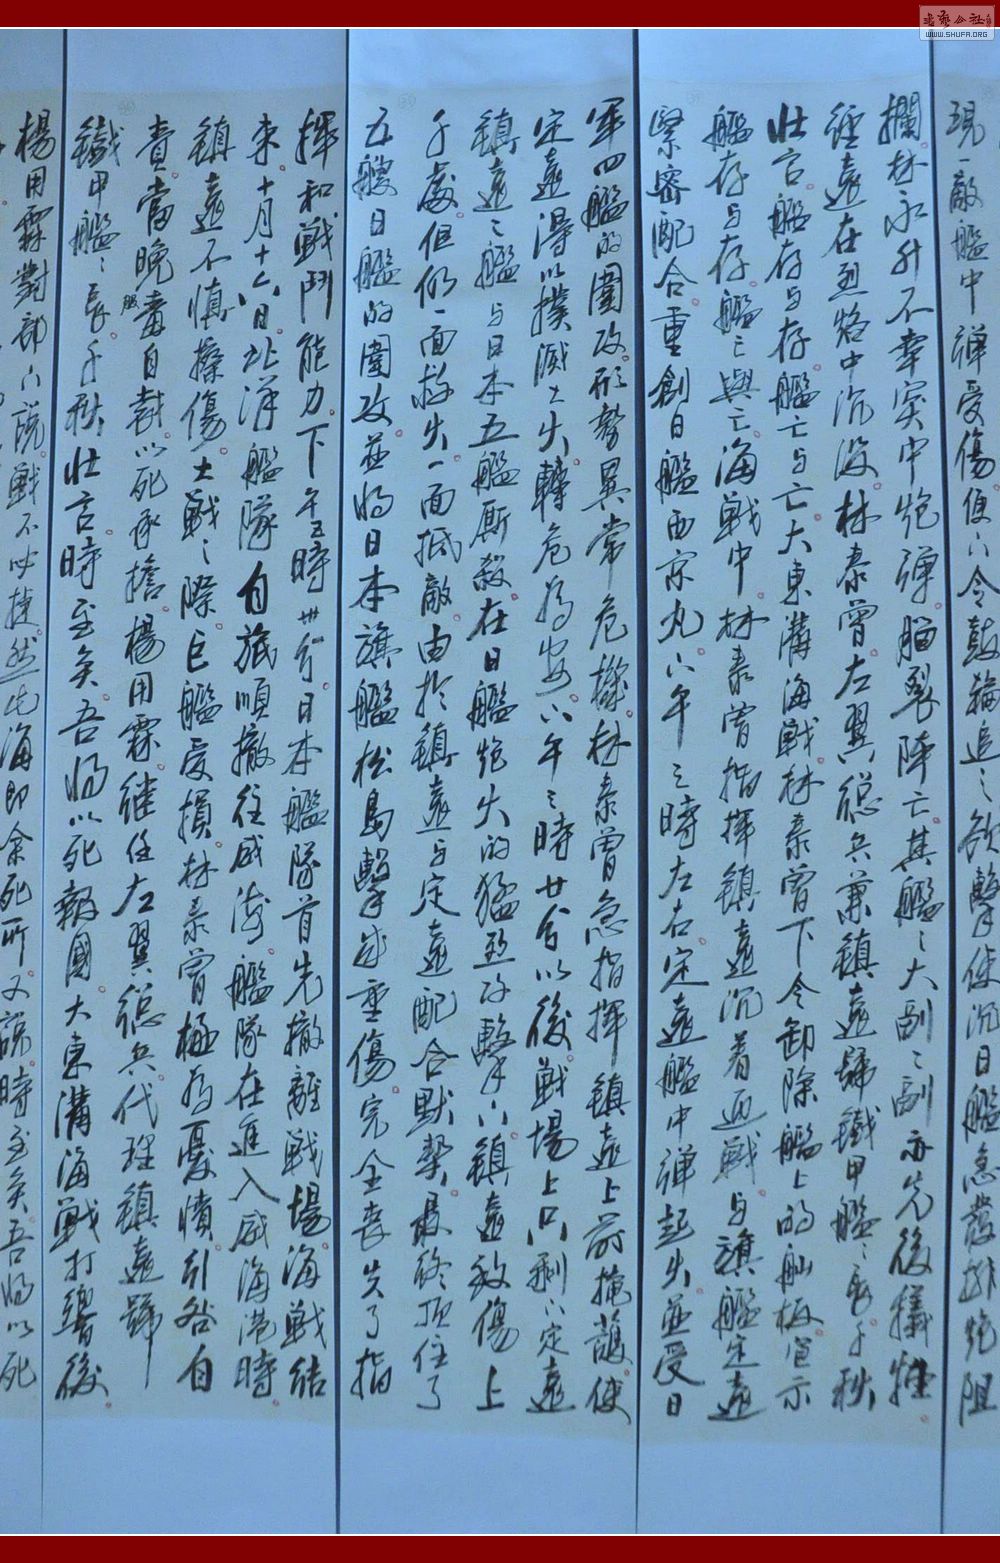 現一敵艦中彈受傷便下令鼓輪追之欲擊使沉日艦急發排炮阻
攔林永升不幸突中炮彈腦裂陣亡其艦之大副二副亦先後犧牲
經遠在烈焰中沉沒林泰曾左翼總兵兼鎮遠號鐵甲艦之長千秋
壯言艦存与存艦亡与亡大東溝海戰林泰曾下令卸除艦上的舢板宣示
艦存与存艦亡與亡海戰中林泰曾指揮鎮遠沉着迎戰与旗艦定遠
緊密配合重創日艦西京丸下午三時左右定遠艦中彈起火並受日
軍四艦的圍攻形勢異常危機林泰曾急指揮鎮遠上前掩護使
定遠得以撲滅大火轉危為安下午三時廿分以後戰場上只剩下定遠
鎮遠二艦与日本五艦厮殺在日艦炮火的猛烈攻擊下鎮遠敵傷上
千處但仍一面救火一面抵敵由於鎮遠与定遠配合默契最終頂住了
五艘日艦的圍攻並將日本旗艦松島擊成重傷完全喪失了指
揮和戰鬥能力下午五時卅分日本艦隊首先撤離戰場海戰結
束十月十八日北洋艦隊自旅順撤往威海艦隊在進入威海港時
鎮遠不慎擦傷大戰之際巨艦受損林泰曾極為憂憤引咎自
責當晚服毒自尽以死承擔楊用霖繼任左翼總兵代理鎮遠號
鐵甲艦之長千秋壯言時至矣吾將以死報國大東溝海戰打響後
楊用霖對部下說戰不必捷然此海即余死所又說時至矣吾將以死
書藝公社
WWW.SHUFA.ORG